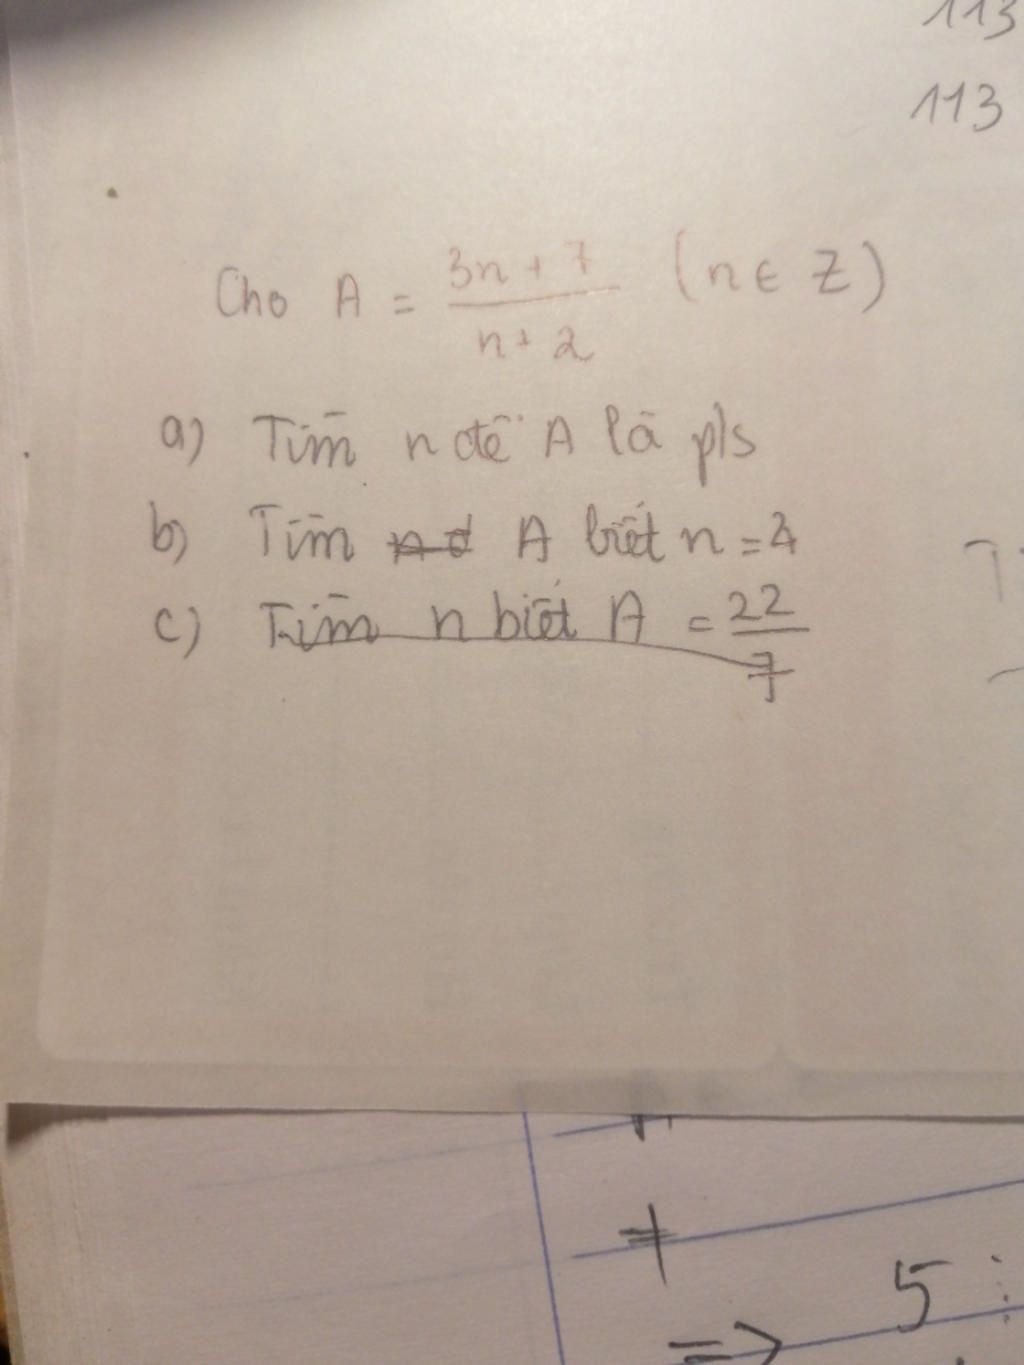 113
113
Cho A = \frac{3n + 7}{n + 2} (n ∈ Z)
a) Tìm n để A là pls
b) Tìm A biết n = 4
c) Tìm n biết A = \frac{22}{7}
=> 5 ⋮